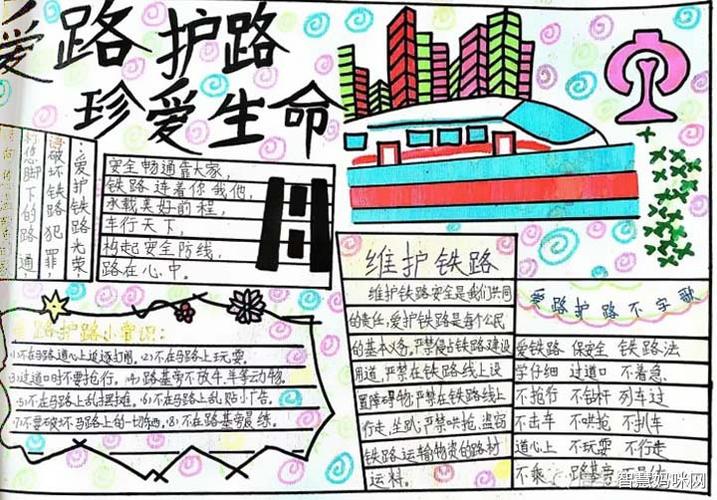 爱路护路
珍爱生命
爱护铁路光荣,
破坏铁路犯罪,
脚下的路通,
安全畅通靠大家,
铁路连着你我他,
承载美好前程,
车行天下,
构起安全防线,
路在心中。
路护路小常识:
⑴不在马路道心上追逐打闹。⑵不在马路上玩耍。
⑶过道口时不要抢行。⑷路基旁不放牛、羊等动物。
⑸不在马路上乱摆摊。⑹不在马路上乱贴小广告。
⑺不要破坏马路上的一切标志。⑻不在路基旁晨练。
维护铁路
维护铁路安全是我们共同
的责任,爱护铁路是每个公民
的基本义务,严禁侵占铁路建设
用道,严禁在铁路线上设
置障碍物,严禁在铁路线上
行走,坐卧,严禁哄抢,盗窃
铁路运输物资的路材
运料。
爱路护路不字歌
爱铁路 保安全 铁路法
学仔细 过道口 不着急
不抢行 不钻杆 列车过
不击车 不哄抢 不扒车
道心上 不玩耍 不行走
不乘 路基旁
智慧妈咪网